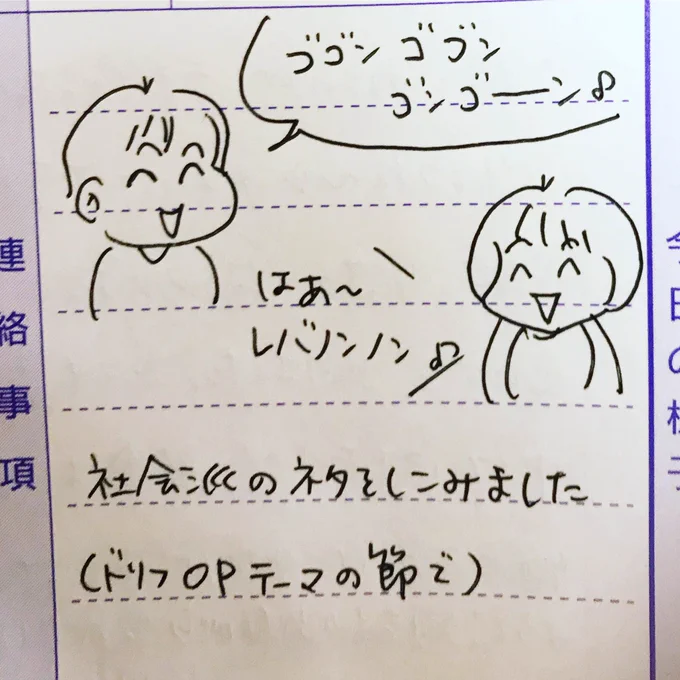 ゴゴン ゴゴン
ゴンゴーン♪
はあ〜
レバノンノン♪
社会派のネタをしこみました
(ドリフOPテーマの節で)
連絡事項
今日の様子